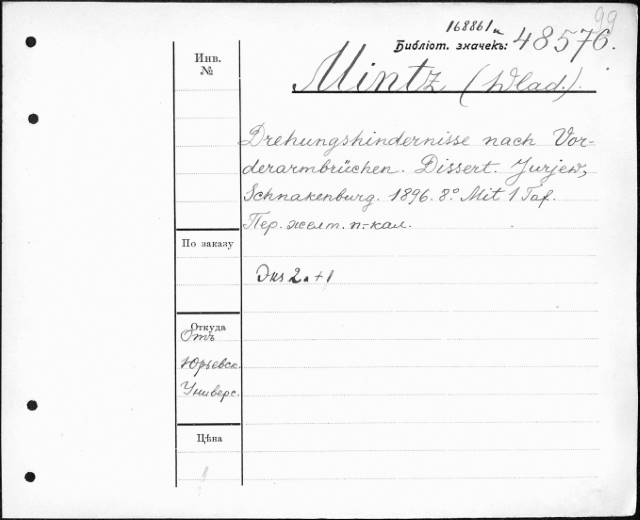 99
168861a
Библіот. значекъ: 48576.
Mintz (Wlad.).
Инв.
№
Drehungshindernisse nach Vor-
derarmbrüchen. Dissert. Jurjew,
Schnakenburg. 1896. 8.° Mit 1 Taf.
Пер. желт. п.-кал.
По заказу
Экз 2a+1
Откуда
Отъ
Юрьевск.
Универс.
Цѣна